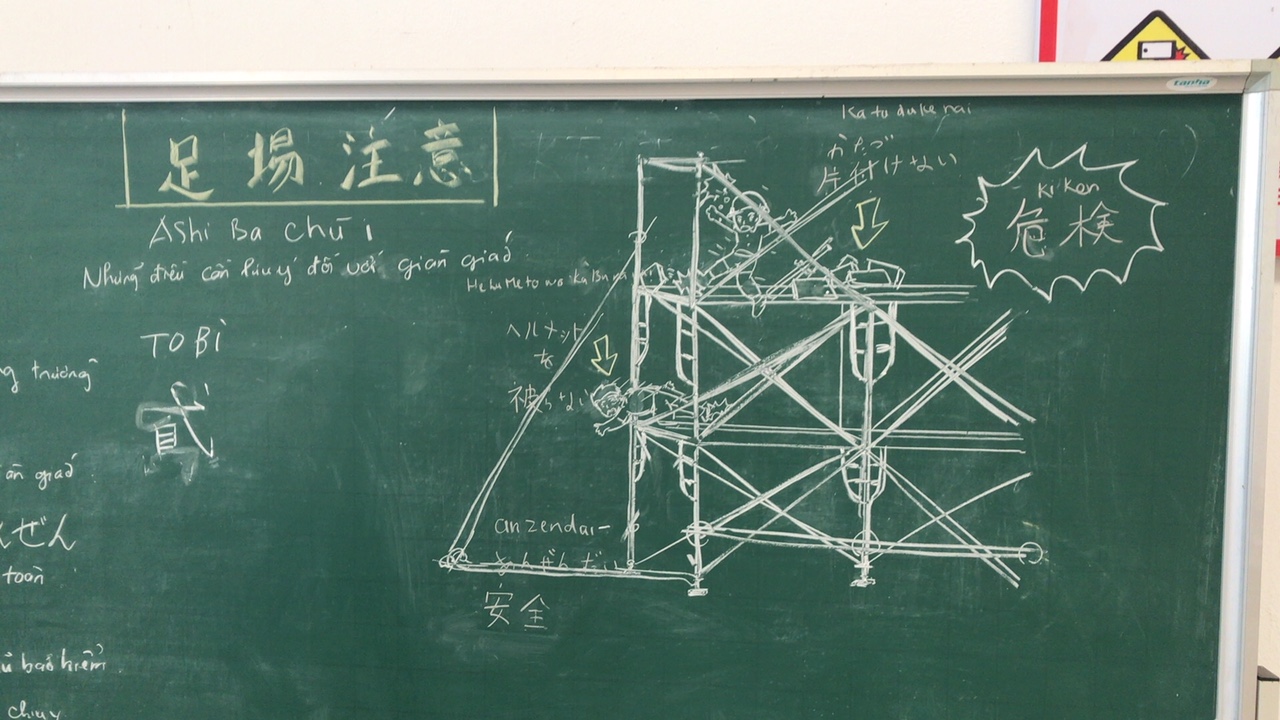 tanho
足場注意
AShi Ba chū i
Những điều cần lưu ý đối với giàn giáo
TOBI
ng trường
àn giáo
んぜん
toàn
bảo hiểm
Katadukenai
片付けない
Kiken
危検
HeruMeto wo KaBu
ヘルメット
を
被らない
anzendai-
安全